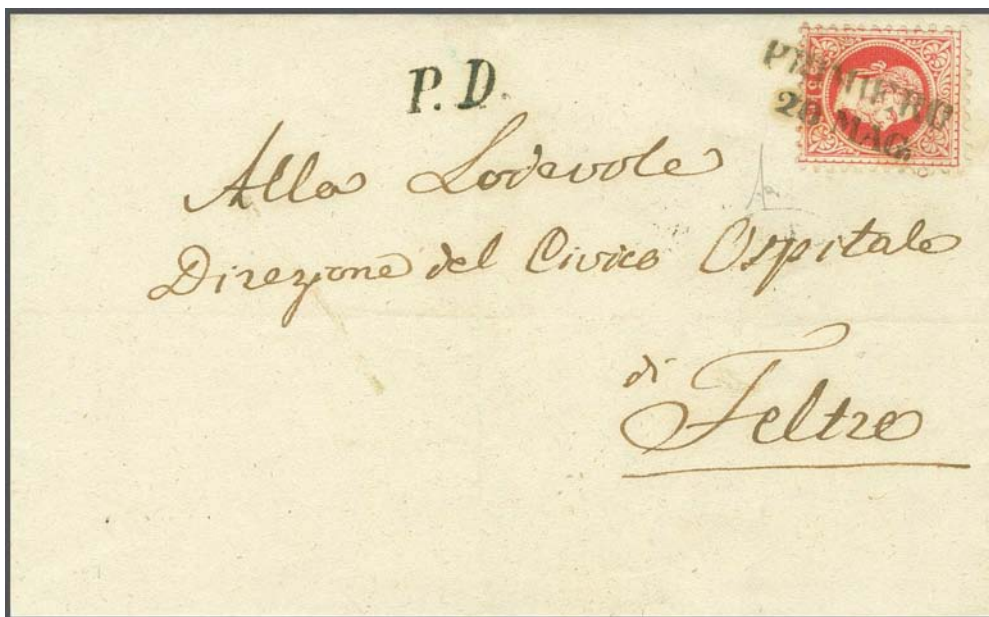 P.D.
PRIMIERO
20 MAG.
Alla Lodevole
Direzione del Civico Ospitale
di
Feltre